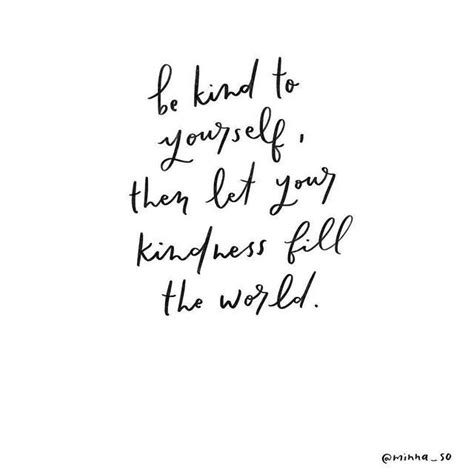 be kind to
yourself,
then let your
kindness fill
the world.
@minna_so